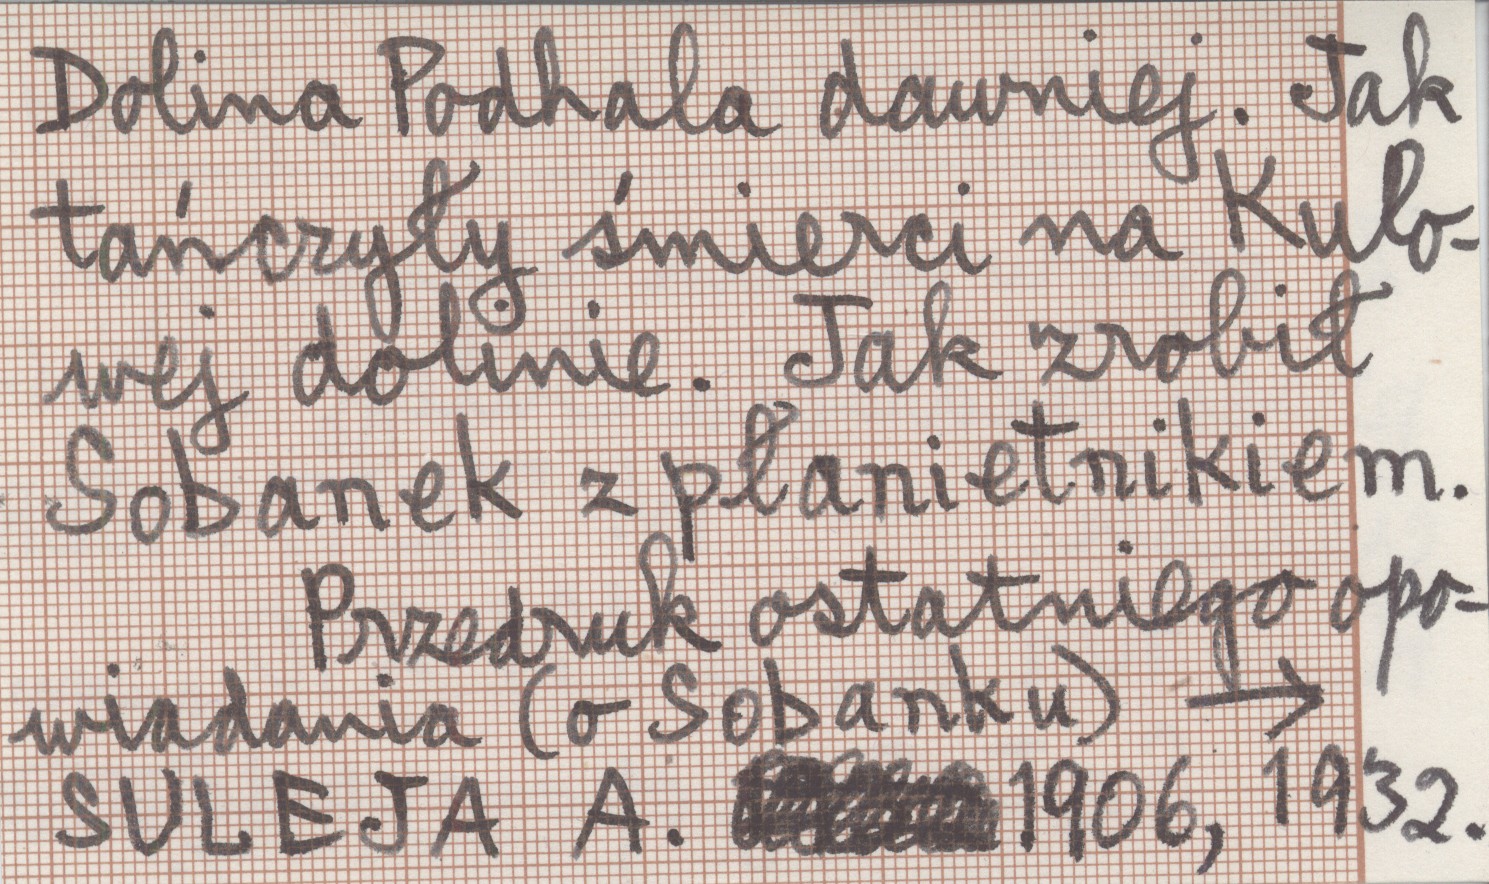 Dolina Podhala dawniej. Jak
tańczyły śmierci na Kulo-
wej dolinie. Jak zrobił
Sobanek z płanietnikiem.
Przedruk ostatniego opo-
wiadania (o Sobanku) →
SULEJA A. 1906, 1932.